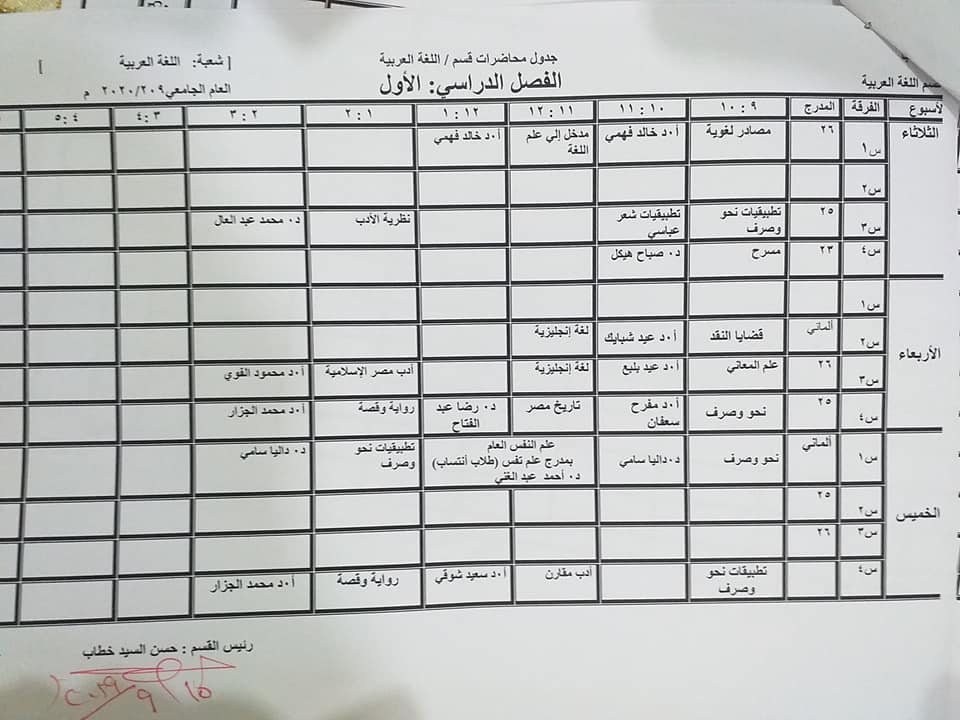 جدول محاضرات قسم / اللغة العربية
[ شعبة: اللغة العربية ]
الفصل الدراسي: الأول
العام الجامعي ٢٠٢٠/٢٠٩ م
قسم اللغة العربية
الأسبوع الفرقة المدرج ٩ : ١٠ ١٠ : ١١ ١١ : ١٢ ١٢ : ١ ١ : ٢ ٢ : ٣ ٣ : ٤ ٤ : ٥
الثلاثاء س١ ٢٦ مصادر لغوية أ.د خالد فهمي مدخل إلي علم اللغة أ.د خالد فهمي
س٢
س٣ ٢٥ تطبيقيات نحو وصرف تطبيقيات شعر عباسي نظرية الأدب د. محمد عبد العال
س٤ ٢٣ مسرح د. صباح هيكل
الأربعاء س١
س٢ ألماني قضايا النقد أ.د عيد شبايك لغة إنجليزية
س٣ ٢٦ علم المعاني أ.د عيد بلبع لغة إنجليزية أدب مصر الإسلامية أ.د محمود القوي
س٤ ٢٥ نحو وصرف أ.د مفرح سعفان تاريخ مصر د. رضا عبد الفتاح رواية وقصة أ.د محمد الجزار
الخميس س١ ألماني نحو وصرف د.داليا سامي علم النفس العام
بمدرج علم نفس (طلاب أنتساب)
د. أحمد عبد الغني
تطبيقيات نحو وصرف د. داليا سامي
س٢ ٢٥
س٣ ٢٦
س٤ تطبيقات نحو وصرف أدب مقارن أ.د سعيد شوقي رواية وقصة أ.د محمد الجزار
رئيس القسم : حسن السيد خطاب